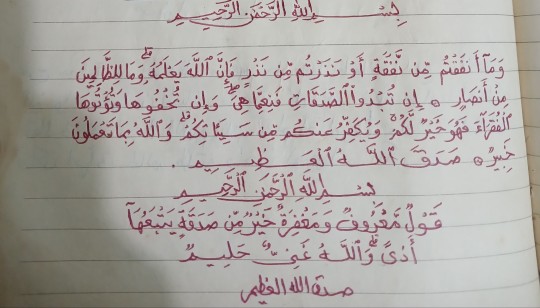 بِسْــــمِ اللهِ الرَّحْمَنِ الرَّحِيــم
وَمَآ أَنفَقْتُم مِّن نَّفَقَةٍ أَوْ نَذَرْتُم مِّن نَّذْرٍ فَإِنَّ اللَّهَ يَعْلَمُهُ ۗ وَمَا لِلظَّالِمِينَ
مِنْ أَنصَارٍ ٥ إِن تُبْدُوا۟ الصَّدَقَاتِ فَنِعِمَّا هِيَ ۖ وَإِن تُخْفُوهَا وَتُؤْتُوهَا
الْفُقَرَآءَ فَهُوَ خَيْرٌ لَّكُمْ ۚ وَيُكَفِّرُ عَنكُم مِّن سَيِّئَاتِكُمْ ۗ وَاللَّهُ بِمَا تَعْمَلُونَ
خَبِيرٌ ٥ صَدَقَ اللَّـــهُ الْعَـــظِيـــم .
بِسْــمِ اللهِ الرَّحْمَنِ الرَّحِيــم
قَــوْلٌ مَّعْرُوفٌ وَمَغْفِرَةٌ خَيْرٌ مِّن صَدَقَةٍ يَتْبَعُهَآ
أَذًى ۗ وَاللَّــهُ غَنِيٌّ حَلِيــمٌ
صدق الله العظيم